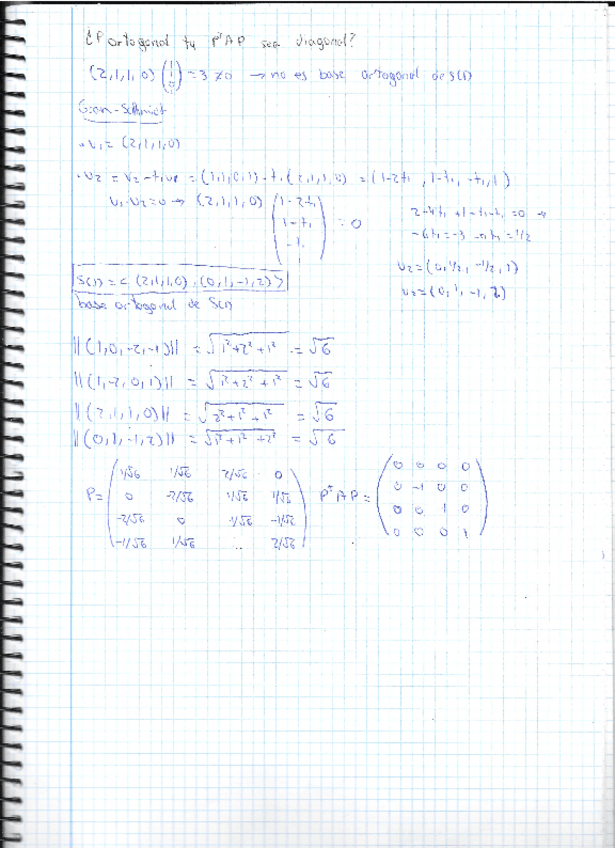 ¿P ortogonal tq PᵗAP sea diagonal?
(2,1,1,0) (1 1 0 1) = 3 ≠ 0 → no es base ortogonal de S(1)
Gram-Schmidt
· v₁ = (2,1,1,0)
· v₂ = v₂ - t₁v₁ = (1,1,0,1) - t₁(2,1,1,0) = (1-2t₁, 1-t₁, -t₁, 1)
v₁·v₂ = 0 → (2,1,1,0) (1-2t₁ 1-t₁ -t₁ 1) = 0
2-4t₁+1-t₁-t₁=0 →
-6t₁=-3 → t₁=1/2
v₂=(0,1/2,-1/2,1)
v₂=(0,1,-1,2)
S(1) = < (2,1,1,0), (0,1,-1,2) >
base ortogonal de S(1)
||(1,0,-2,-1)|| = √1²+2²+1² = √6
||(1,-2,0,1)|| = √1²+2²+1² = √6
||(2,1,1,0)|| = √2²+1²+1² = √6
||(0,1,-1,2)|| = √1²+1²+2² = √6
P= 1/√6 1/√6 2/√6 0
0 -2/√6 1/√6 1/√6
-2/√6 0 1/√6 -1/√6
-1/√6 1/√6 2/√6
PᵗAP =
0 0 0 0
0 -1 0 0
0 0 1 0
0 0 0 1